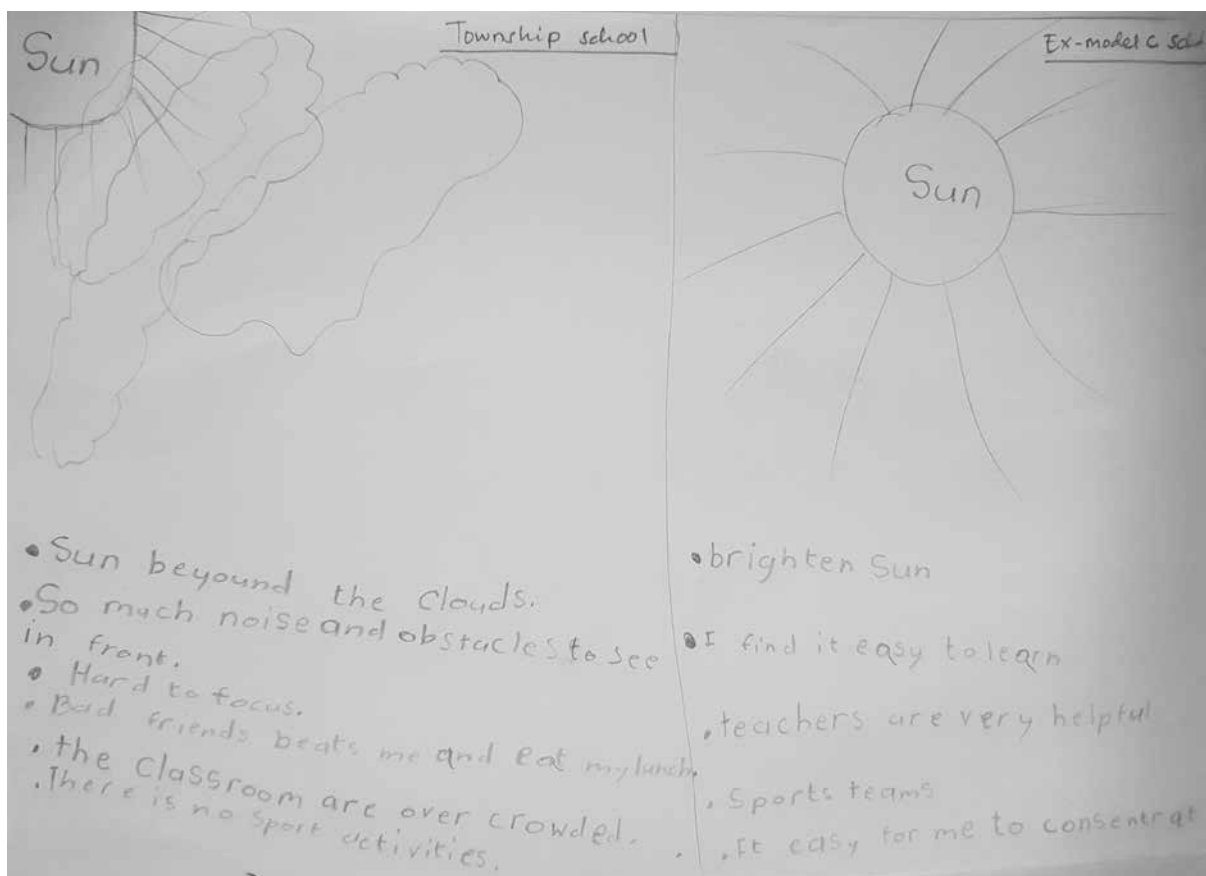 Sun
Township school
• Sun beyound the clouds.
• So much noise and obstacles to see
in front.
• Hard to focus.
• Bad friends beats me and eat my lunch.
• the classroom are over crowded.
• There is no sport activities.
Ex-model C
Sun
• brighten Sun
• I find it easy to learn
• teachers are very helpful
• Sports teams
• It easy for me to consentrat